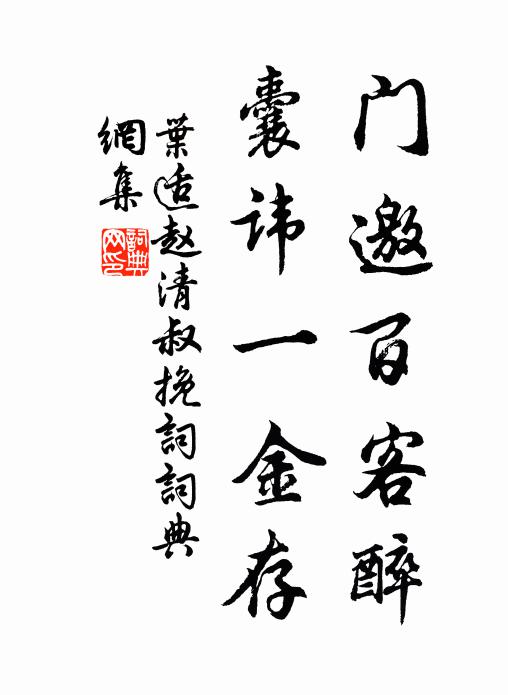 门邀百客醉
囊讳一金存
葉适赵清叔挽詞詞典
網集
詞典網印